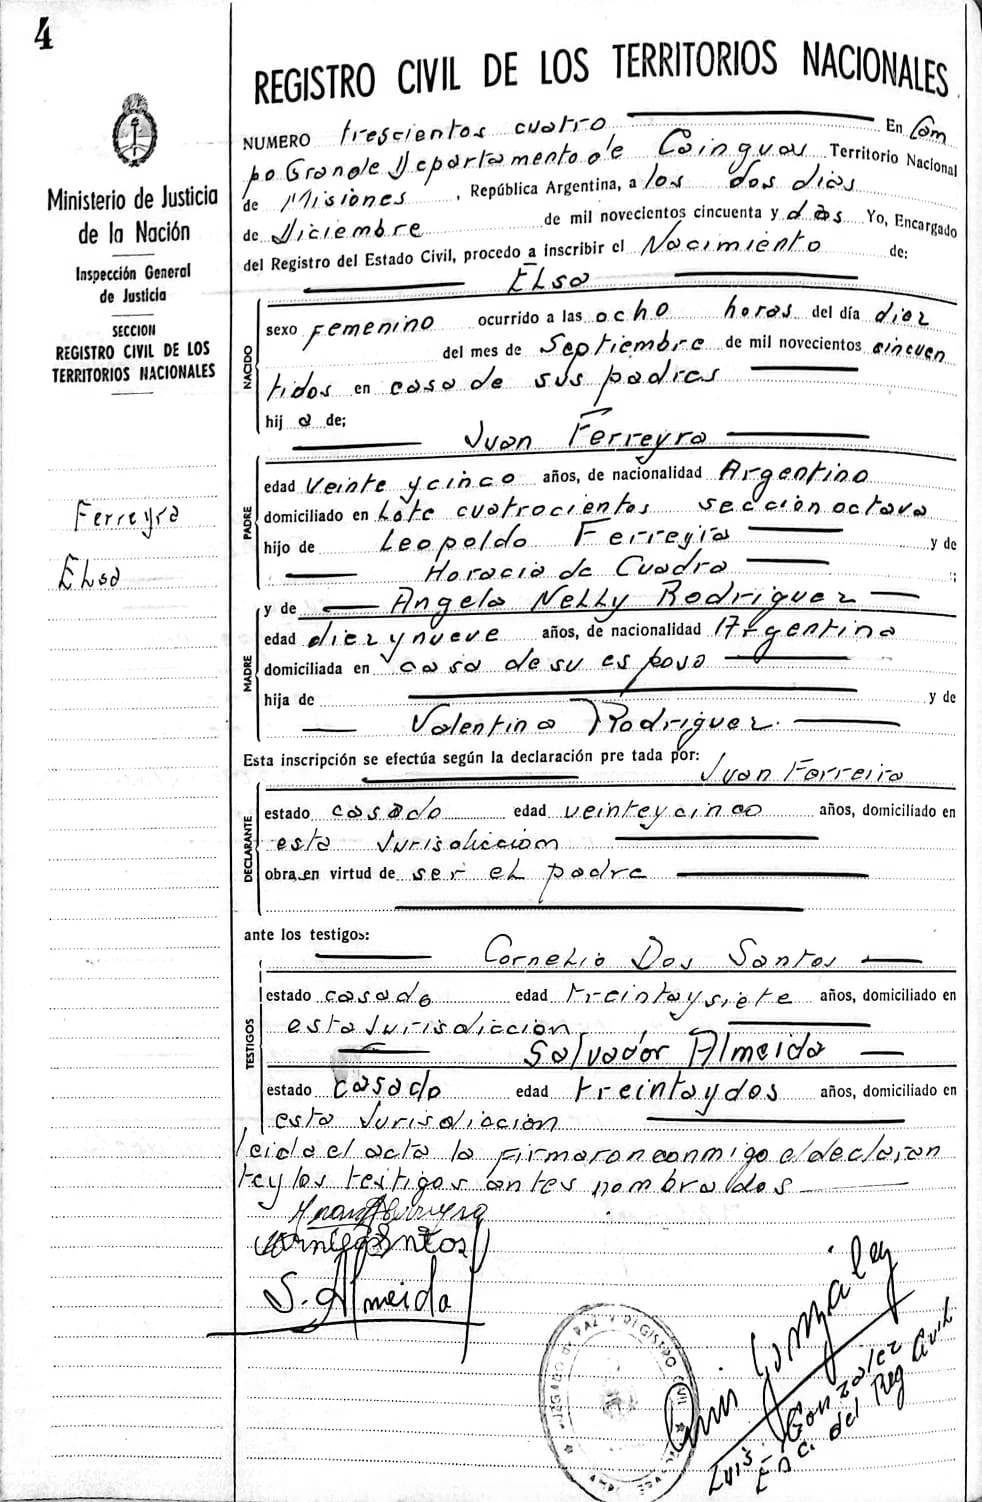 4
REGISTRO CIVIL DE LOS TERRITORIOS NACIONALES
Ministerio de Justicia
de la Nación
Inspección General
de Justicia
SECCION
REGISTRO CIVIL DE LOS
TERRITORIOS NACIONALES
Ferreyra
Elsa
NUMERO trescientos cuatro En Cam
po Grande Departamento de Cainguas Territorio Nacional
de Misiones, República Argentina, a los dos dias
de Diciembre de mil novecientos cincuenta y dos Yo, Encargado
del Registro del Estado Civil, procedo a inscribir el Nacimiento de:
Elsa
NACIDO
sexo Femenino ocurrido a las ocho horas del día diez
del mes de Septiembre de mil novecientos cincuen
tidos en casa de sus padres
hij a de;
Juan Ferreyra
PADRE
edad veinte y cinco años, de nacionalidad Argentino
domiciliado en Lote cuatrocientos sección octava
hijo de Leopoldo Ferreyra y de
Horacia de Cuadra ;
y de Angela Nelly Rodriguez
MADRE
edad diez y nueve años, de nacionalidad Argentina
domiciliada en casa de su esposo
hija de y de
Valentina Rodriguez.
Esta inscripción se efectúa según la declaración pre tada por:
Juan Ferreira
DECLARANTE
estado casado edad veinteycinco años, domiciliado en
esta Jurisdicción
obra en virtud de ser el padre
ante los testigos:
Cornelio Dos Santos
TESTIGOS
estado casado edad treintaysiete años, domiciliado en
esta Jurisdicción
Salvador Almeida
estado casado edad treintaydos años, domiciliado en
esta Jurisdicción
leida el acta la firmaron conmigo el declaran
te y los testigos antes nombrados
S. Almeida
Luis Gonzalez
Luis Gonzalez
Enc. del Reg Civil
JUZGADO DE PAZ Y REGISTRO CIVIL